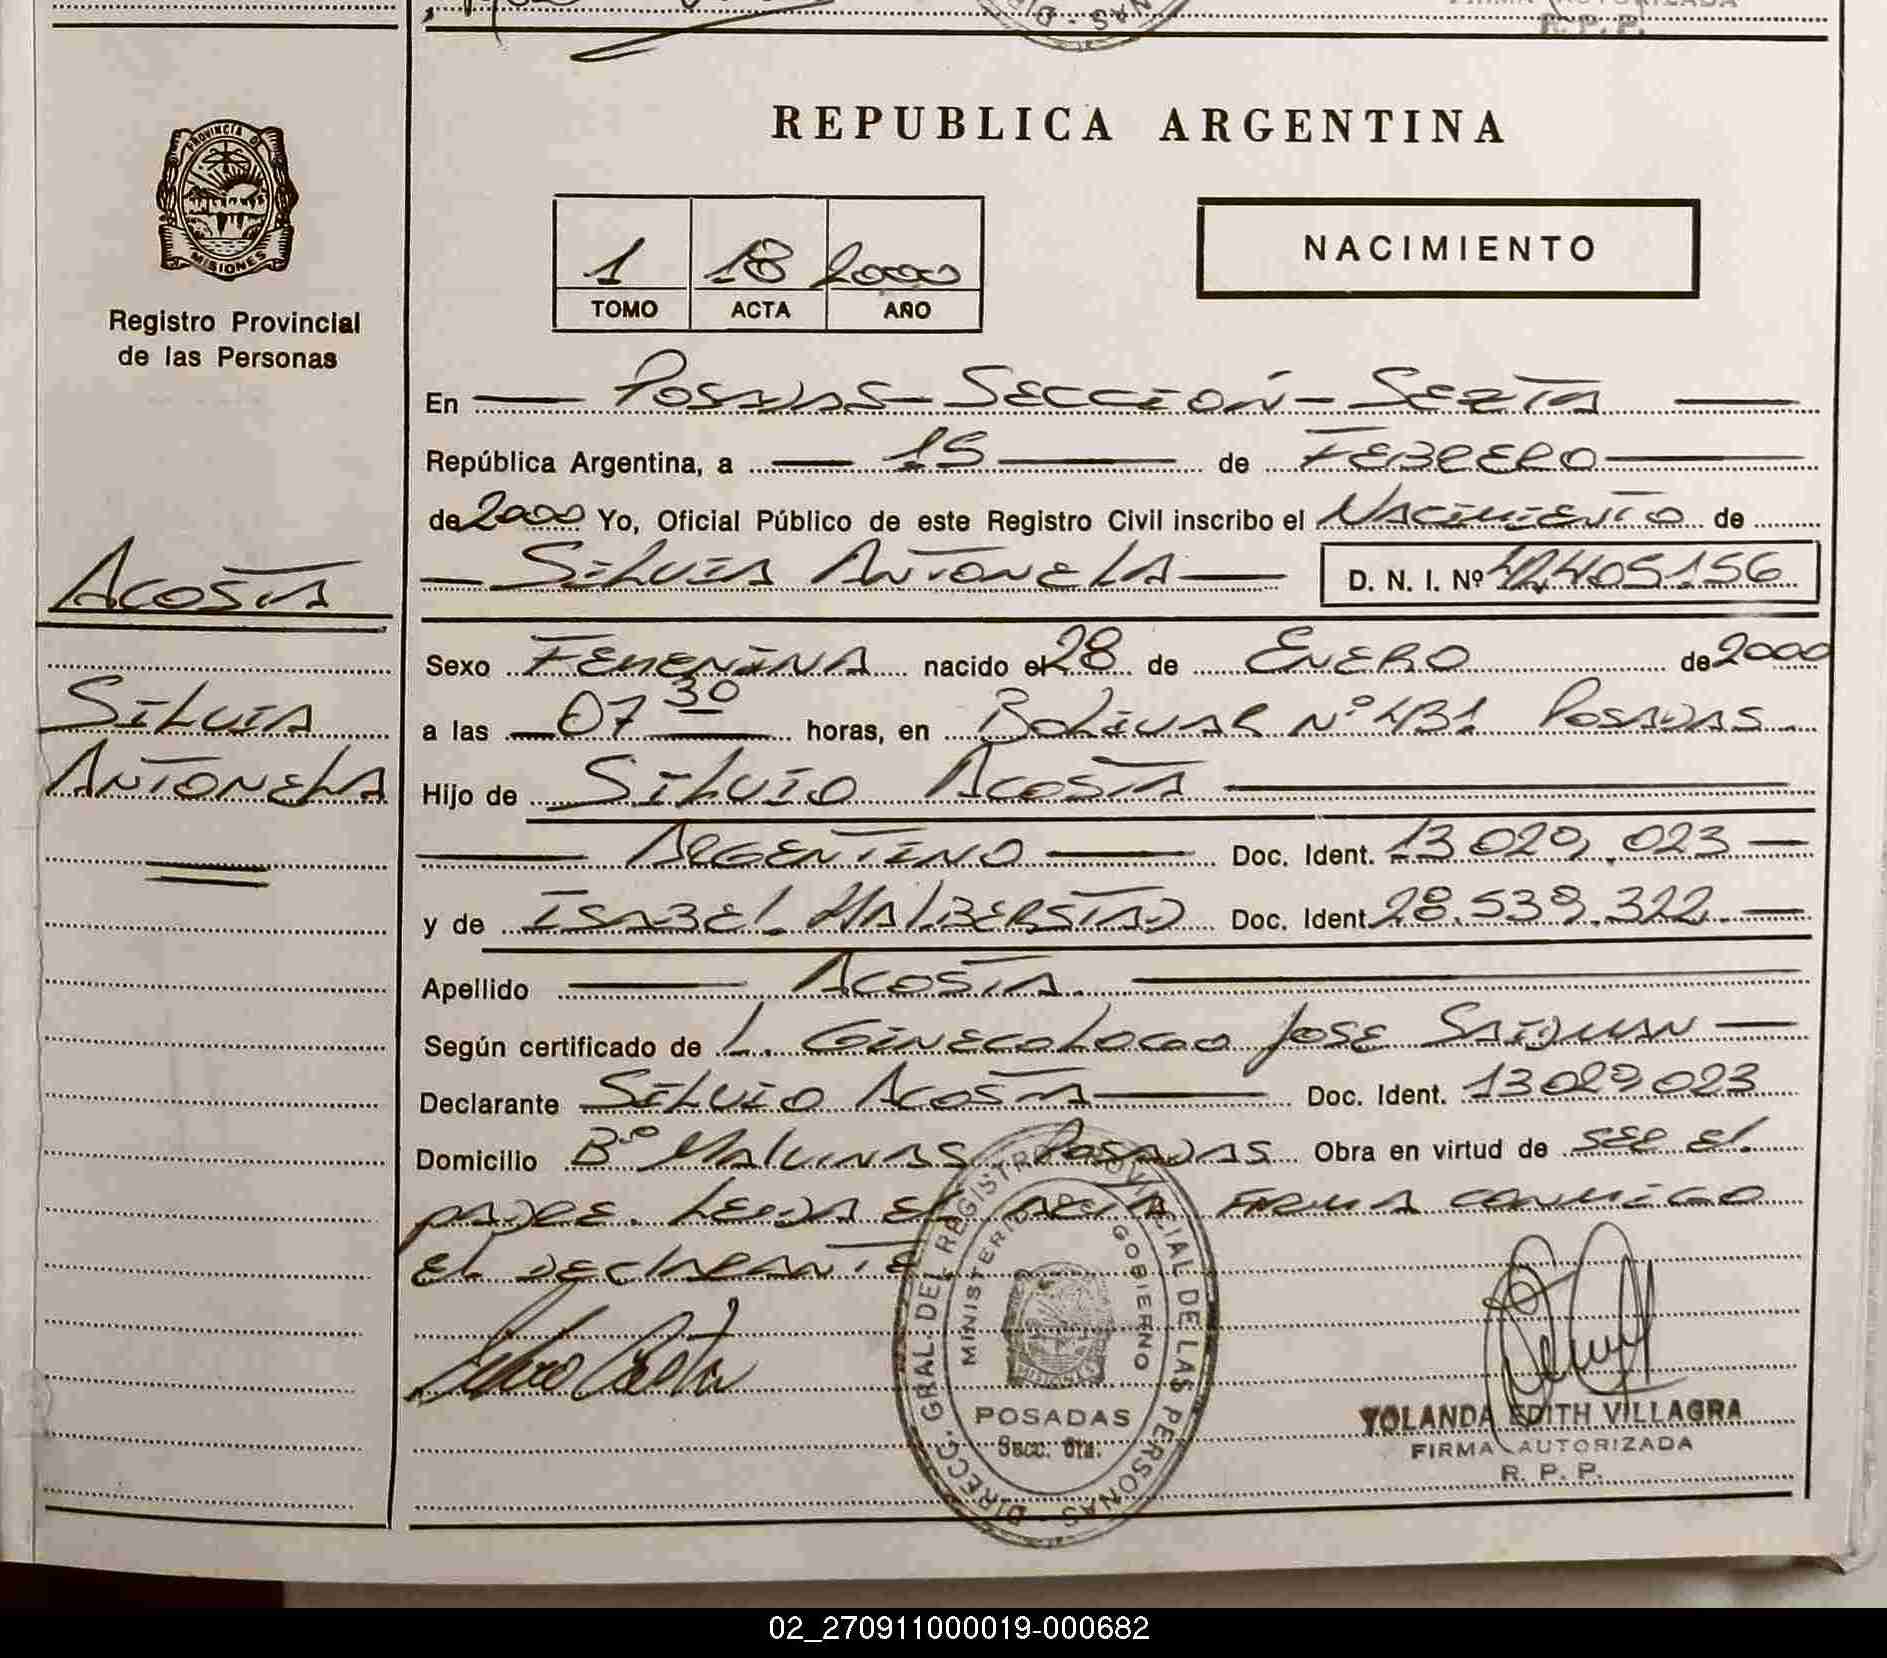 FIRMA AUTORIZADA
R. P. P.
PROVINCIA D
MISIONES
Registro Provincial
de las Personas
ACOSTA
SILVIA
ANTONELA
REPUBLICA ARGENTINA
1 18 2000
TOMO ACTA AÑO
NACIMIENTO
En POSADAS-SECCIÓN-SEXTA
República Argentina, a 15 de FEBRERO
de 2000 Yo, Oficial Público de este Registro Civil inscribo el NACIMIENTO de
SILVIA ANTONELA D. N. I. Nº 42.405.156
Sexo FEMENINA nacido el 28 de ENERO de 2000
a las 07 30 horas, en BOLIVAR Nº 431 POSADAS
Hijo de SILVIO ACOSTA
ARGENTINO Doc. Ident. 13.029.023
y de ISABEL HALBERSTAD Doc. Ident. 28.539.322
Apellido ACOSTA
Según certificado de L. GINECOLOGO JOSE
Declarante SILVIO ACOSTA Doc. Ident. 13029023
Domicilio Bº MALVINAS POSADAS Obra en virtud de SER EL
PADRE. LEIDA EL ACTA FIRMA CONMIGO
EL DECLARANTE
DIRECC. GRAL. DEL REGISTRO PROVINCIAL DE LAS PERSONAS
MINISTERIO GOBIERNO
POSADAS
Secc. 6ta.
YOLANDA EDITH VILLAGRA
FIRMA AUTORIZADA
R. P. P.
02_270911000019-000682